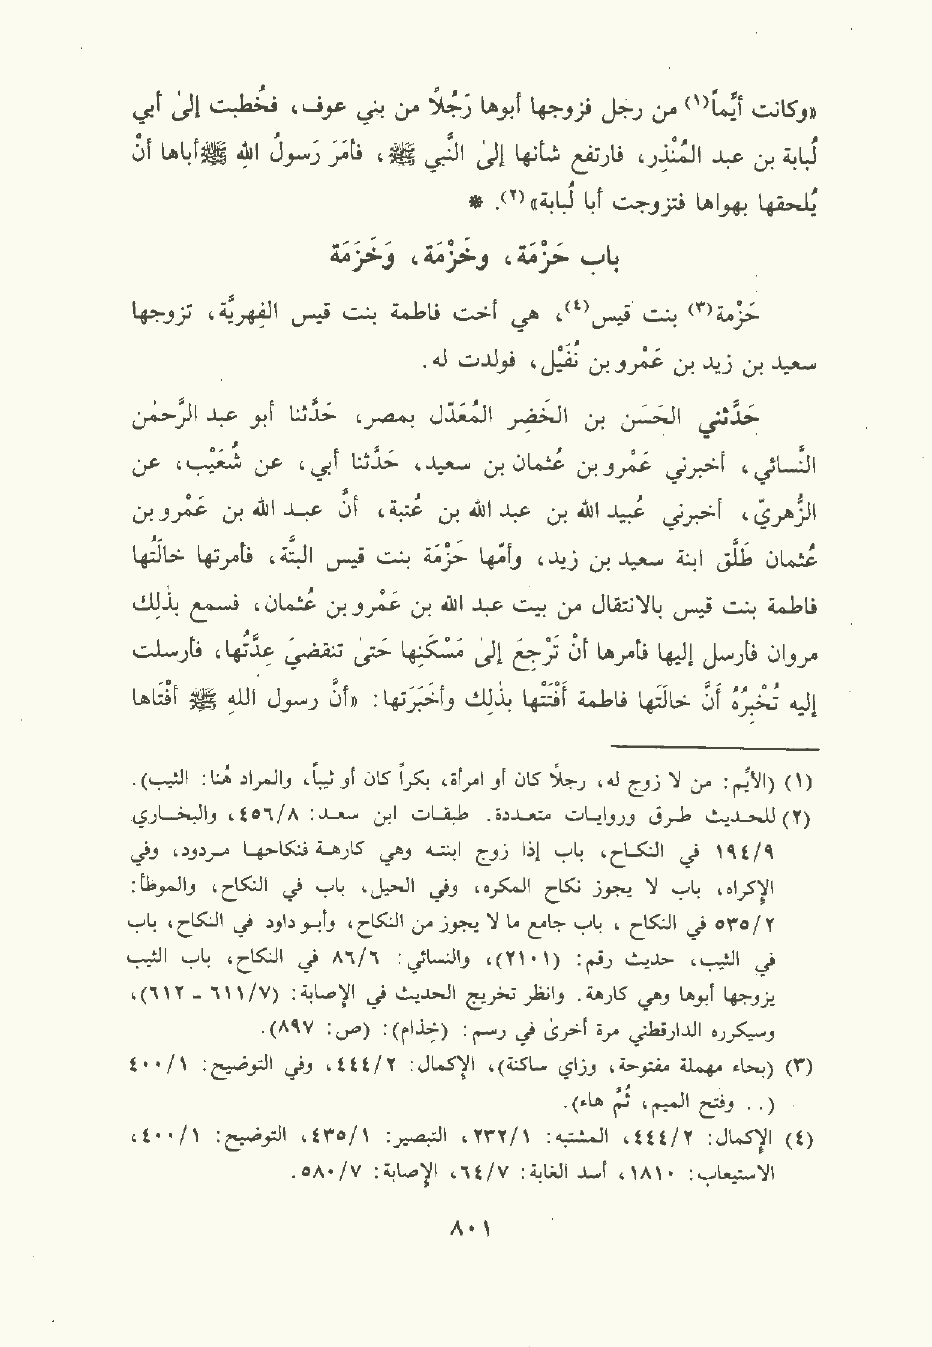 «وكانت أيِّماً(١) من رجل فزوجها أبوها رَجُلاً من بني عوف، فخُطبت إلىٰ أبي
لُبابة بن عبد المُنْذر، فارتفع شأنها إلىٰ النَّبي ﷺ، فأَمَرَ رَسولُ الله ﷺ أباها أنْ
يُلحقها بهواها فتزوجت أبا لُبابة»(٢). *
باب حَزْمَة، وخَزْمَة، وَخَزَمَة
حَزْمة(٣) بنت قيس(٤)، هي أخت فاطمة بنت قيس الفِهريَّة، تزوجها
سعيد بن زيد بن عَمْرو بن نُفَيْل، فولدت له.
حَدَّثني الحَسَن بن الخَضِر المُعَدّل بمصر، حَدَّثنا أبو عبد الرَّحمٰن
النَّسائي، أخبرني عَمْرو بن عُثمان بن سعيد، حَدَّثنا أبي، عن شُعَيْب، عن
الزُّهريّ، أخبرني عُبيد الله بن عبد الله بن عُتبة، أنَّ عبد الله بن عَمْرو بن
عُثمان طَلَّق ابنة سعيد بن زيد، وأمّها حَزْمَة بنت قيس البتَّة، فأمرتها خالَتُها
فاطمة بنت قيس بالانتقال من بيت عبد الله بن عَمْرو بن عُثمان، فسمع بذٰلك
مروان فأرسل إليها فأمرها أنْ تَرْجِعَ إلىٰ مَسْكَنِها حَتىٰ تنقضيَ عِدَّتُها، فأرسلت
إليه تُخْبِرُهُ أَنَّ خالتَها فاطمة أَفْتَتْها بذٰلك وأخبَرَتها: «أنَّ رسول اللهِ ﷺ أفْتَاها
(١) (الأيِّم: من لا زوج له، رجلاً كان أو امرأة، بكراً كان أو ثيباً، والمراد هُنا: الثيب).
(٢) للحديث طرق وروايات متعددة. طبقات ابن سعد: ٤٥٦/٨، والبخاري
١٩٤/٩ في النكاح، باب إذا زوج ابنته وهي كارهة فنكاحها مردود، وفي
الإكراه، باب لا يجوز نكاح المكره، وفي الحيل، باب في النكاح، والموطأ:
٥٣٥/٢ في النكاح ، باب جامع ما لا يجوز من النكاح، وأبو داود في النكاح، باب
في الثيب، حديث رقم: (٢١٠١)، والنسائي: ٨٦/٦ في النكاح، باب الثيب
يزوجها أبوها وهي كارهة. وانظر تخريج الحديث في الإصابة: (٦١١/٧ - ٦١٢)،
وسيكرره الدارقطني مرة أخرىٰ في رسم: (خِذام): (ص: ٨٩٧).
(٣) (بحاء مهملة مفتوحة، وزاي ساكنة)، الإكمال: ٤٤٤/٢، وفي التوضيح: ٤٠٠/١
(.. وفتح الميم، ثُمَّ هاء).
(٤) الإكمال: ٤٤٤/٢، المشتبه: ٢٣٢/١، التبصير: ٤٣٥/١، التوضيح: ٤٠٠/١،
الاستيعاب: ١٨١٠، أسد الغابة: ٦٤/٧، الإصابة: ٥٨٠/٧.
٨٠١